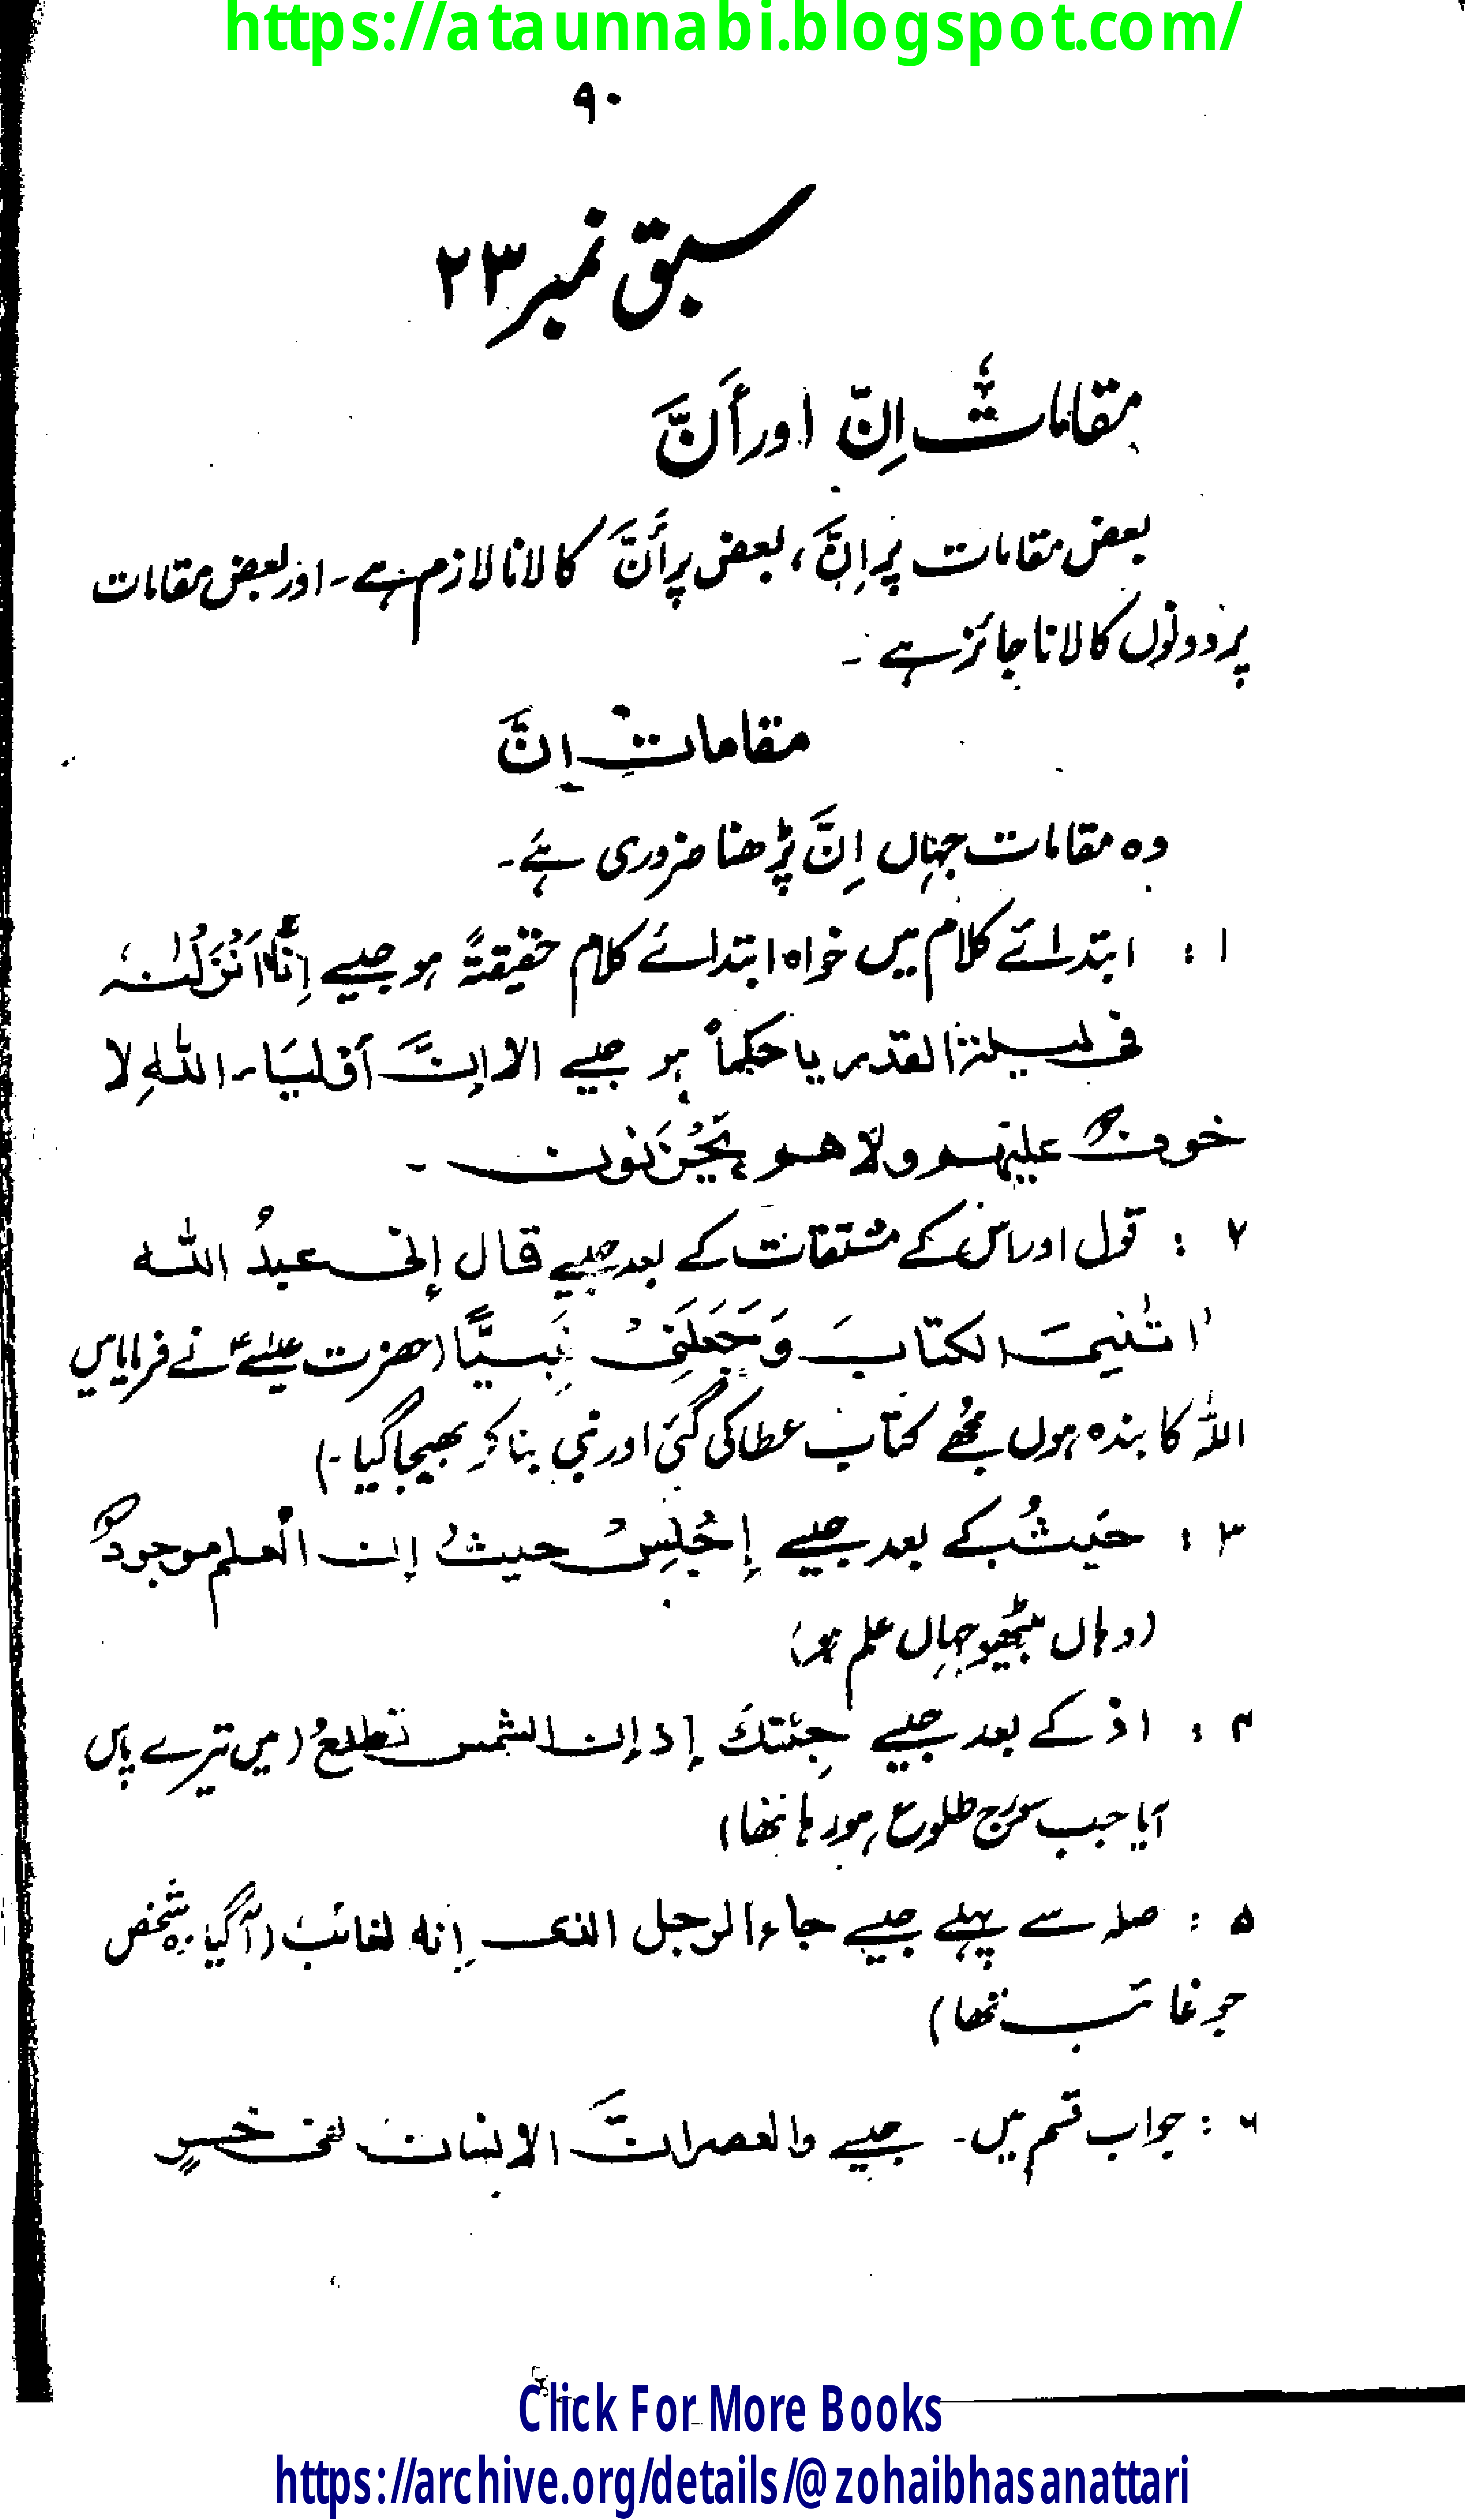 https://ataunnabi.blogspot.com/
۹۰
سبق نمبر ۲۳
مقاماتِ اِنّ اور أَنَّ
بعض مقامات پر اِنَّ، بعض پر أَنَّ کا لانا لازم ہے۔ اور بعض مقامات
پر دونوں کا لانا جائز ہے ۔
مقاماتِ اِنَّ
وہ مقامات جہاں اِنَّ پڑھنا ضروری ہے۔
۱ : ابتدائے کلام میں خواہ ابتدائے کلام حقیقۃً ہو جیسے اِنَّا اَنْزَلْنٰہُ
فی لیلۃ القدر یا حکماً ہو جیسے الا اِنَّ اَوْلیَاء اللّٰہِ لا
خوفٌ علیہم ولا ھم یَحْزَنُون ۔
۲ : قول اور اس کے مشتقات کے بعد جیسے قال إنی عبدُ اللّٰہ
اٰتٰنِیَ الکتابَ وَجَعَلَنِیْ نَبِیًّا (حضرت عیسٰیؑ نے فرمایا میں
اللّٰہ کا بندہ ہوں مجھے کتاب عطا کی گئی اور نبی بنا کر بھیجا گیا ۔)
۳ : حَیْثُ کے بعد جیسے إِجْلِسْ حیثُ إن الْعلم موجودٌ
(وہاں بیٹھو جہاں علم ہو)
۴ : اذ کے بعد جیسے جِئتکَ إذ إن الشمس تطلعُ (میں تیرے پاس
آیا جب سورج طلوع ہو رہا تھا)
۵ : صلہ سے پہلے جیسے جاء الرجل الذی إنہ لغائب (آ گیا وہ شخص
جو غائب تھا)
۶ : جواب قسم میں۔ جیسے والعصر انَّ الانسان لفی خسرٍ
Click For More Books
https://archive.org/details/@zohaibhasanattari